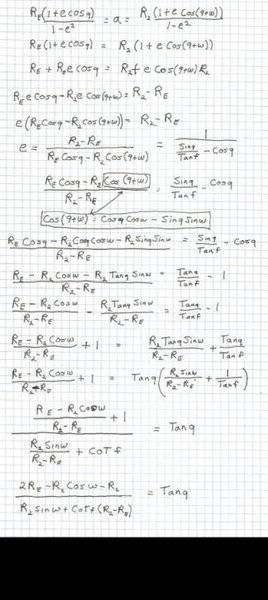 R_E(1+e cos q)/(1-e²) = a = R_2(1+e Cos(q+w))/(1-e²)
R_E(1+e cos q) = R_2(1+e Cos(q+w))
R_E + R_E e cos q = R_2 + e Cos(q+w) R_2
R_E e cos q - R_2 e Cos(q+w) = R_2 - R_E
e(R_E Cos q - R_2 Cos(q+w)) = R_2 - R_E
e = (R_2 - R_E)/(R_E Cos q - R_2 Cos(q+w)) = 1/(Sin q/Tan f - Cos q)
(R_E Cos q - R_2 Cos(q+w))/(R_2 - R_E) = Sin q/Tan f - Cos q
Cos(q+w) = Cos q Cos w - Sin q Sin w
(R_E Cos q - R_2 Cos q Cos w - R_2 Sin q Sin w)/(R_2 - R_E) = Sin q/Tan f - Cos q
(R_E - R_2 Cos w - R_2 Tan q Sin w)/(R_2 - R_E) = Tan q/Tan f - 1
(R_E - R_2 Cos w)/(R_2 - R_E) - R_2 Tan q Sin w/(R_2 - R_E) = Tan q/Tan f - 1
(R_E - R_2 Cos w)/(R_2 - R_E) + 1 = R_2 Tan q Sin w/(R_2 - R_E) + Tan q/Tan f
(R_E - R_2 Cos w)/(R_2 - R_E) + 1 = Tan q (R_2 Sin w/(R_2 - R_E) + 1/Tan f)
((R_E - R_2 Cos w)/(R_2 - R_E) + 1)/(R_2 Sin w/(R_2 - R_E) + CoT f) = Tan q
(2R_E - R_2 Cos w - R_2)/(R_2 Sin w + CoT f (R_2 - R_E)) = Tan q